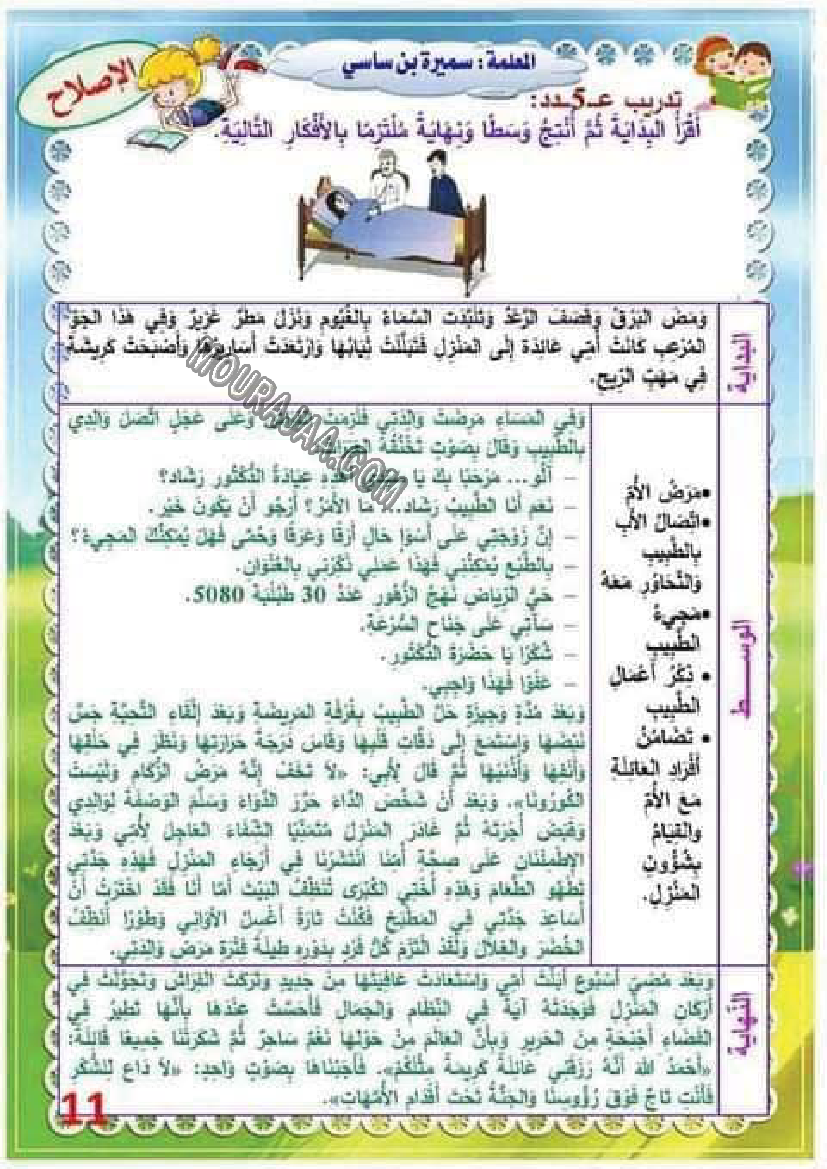 الإصلاح
المعلمة: سميرة بن ساسي
تدريب عـ5ـدد:
أَقْرَأُ البِدَايَةَ ثُمَّ أُنْتِجُ وَسَطًا وَنِهَايَةً مُلْتَزِمًا بِالأَفْكَارِ التَّالِيَةِ.
البداية
وَمَضَ البَرْقُ وَقَصَفَ الرَّعْدُ وَتَلَبَّدَتِ السَّمَاءُ بِالغُيُومِ وَنَزَلَ مَطَرٌ غَزِيرٌ وَفِي هَذَا الجَوِّ
المُرْعِبِ كَانَتْ أُمِّي عَائِدَةً إِلَى المَنْزِلِ فَتَبَلَّلَتْ ثِيَابُهَا وَارْتَعَدَتْ أَسَارِيرُهَا وَأَصْبَحَتْ كَرِيشَةٍ
فِي مَهَبِّ الرِّيحِ.
الوسـط
•مَرَضُ الأُمِّ
•اتِّصَالُ الأَبِ
بِالطَّبِيبِ
وَالتَّحَاوُرِ مَعَهُ
•مَجِيءُ
الطَّبِيبِ
• ذِكْرُ أَعْمَالِ
الطَّبِيبِ
• تَضَامُنُ
أَفْرَادِ العَائِلَةِ
مَعَ الأُمِّ
وَالقِيَامُ
بِشُؤُونِ
المَنْزِلِ.
وَفِي المَسَاءِ مَرِضَتْ وَالِدَتِي فَلَزِمَتْ وَعَلَى عَجَلٍ اتَّصَلَ وَالِدِي
بِالطَّبِيبِ وَقَالَ بِصَوْتٍ تَخْنُقُهُ
– أَلُو... مَرْحَبًا بِكَ يَا عِيَادَةُ الدُّكْتُورِ رَشَاد؟
– نَعَمْ أَنَا الطَّبِيبُ رَشَاد... مَا الأَمْرُ؟ أَرْجُو أَنْ يَكُونَ خَيْر.
– إِنَّ زَوْجَتِي عَلَى أَسْوَإِ حَالٍ أَرَقًا وَعَرَقًا وَحُمَّى فَهَلْ يُمْكِنُكَ المَجِيءُ؟
– بِالطَّبْعِ يُمْكِنُنِي فَهَذَا عَمَلِي ذَكِّرْنِي بِالعُنْوَانِ.
– حَيُّ الرِّيَاضِ نَهْجُ الزُّهُورِ عَدَدُ 30 طَبُلْبَة 5080.
– سَآتِي عَلَى جَنَاحِ السُّرْعَةِ.
– شُكْرًا يَا حَضْرَةَ الدُّكْتُورِ.
– عَفْوًا فَهَذَا وَاجِبِي.
وَبَعْدَ مُدَّةٍ وَجِيزَةٍ حَلَّ الطَّبِيبُ بِغُرْفَةِ المَرِيضَةِ وَبَعْدَ إِلْقَاءِ التَّحِيَّةِ جَسَّ
نَبْضَهَا وَاسْتَمَعَ إِلَى دَقَّاتِ قَلْبِهَا وَقَاسَ دَرَجَةَ حَرَارَتِهَا وَنَظَرَ فِي حَلْقِهَا
وَأَنْفِهَا وَأُذُنَيْهَا ثُمَّ قَالَ لِأَبِي: «لاَ تَخَفْ إِنَّهُ مَرَضُ الزُّكَامِ وَلَيْسَتْ
الكُورُونَا». وَبَعْدَ أَنْ شَخَّصَ الدَّاءَ حَرَّرَ الدَّوَاءَ وَسَلَّمَ الوَصْفَةَ لِوَالِدِي
وَقَبَضَ أُجْرَتَهُ ثُمَّ غَادَرَ المَنْزِلَ مُتَمَنِّيًا الشِّفَاءَ العَاجِلَ لِأُمِّي وَبَعْدَ
الاِطْمِئْنَانِ عَلَى صِحَّةِ أُمِّنَا انْتَشَرْنَا فِي أَرْجَاءِ المَنْزِلِ فَهَذِهِ جَدَّتِي
تَطْهُو الطَّعَامَ وَهَذِهِ أُخْتِي الكُبْرَى تُنَظِّفُ البَيْتَ أَمَّا أَنَا فَقَدْ اخْتَرْتُ أَنْ
أُسَاعِدَ جَدَّتِي فِي المَطْبَخِ فَكُنْتُ تَارَةً أَغْسِلُ الأَوَانِي وَطَوْرًا أُنَظِّفُ
الخُضَرَ وَالغِلاَلَ وَلَقَدْ الْتَزَمَ كُلُّ فَرْدٍ بِدَوْرِهِ طِيلَةَ فَتْرَةِ مَرَضِ وَالِدَتِي.
النهاية
وَبَعْدَ مُضِيِّ أُسْبُوعٍ أَبَلَّتْ أُمِّي وَاسْتَعَادَتْ عَافِيَتَهَا مِنْ جَدِيدٍ وَتَرَكَتِ الفِرَاشَ وَتَجَوَّلَتْ فِي
أَرْكَانِ المَنْزِلِ فَوَجَدَتْهُ آيَةً فِي النِّظَامِ وَالجَمَالِ فَأَحَسَّتْ عِنْدَهَا بِأَنَّهَا تَطِيرُ فِي
الفَضَاءِ بِأَجْنِحَةٍ مِنَ الحَرِيرِ وَبِأَنَّ العَالَمَ مِنْ حَوْلِهَا نَغَمٌ سَاحِرٌ ثُمَّ شَكَرَتْنَا جَمِيعًا قَائِلَةً:
«أَحْمَدُ اللهَ أَنَّهُ رَزَقَنِي عَائِلَةً كَرِيمَةً مِثْلَكُمْ». فَأَجَبْنَاهَا بِصَوْتٍ وَاحِدٍ: «لاَ دَاعِ لِلشُّكْرِ
فَأَنْتِ تَاجٌ فَوْقَ رُؤُوسِنَا وَالجَنَّةُ تَحْتَ أَقْدَامِ الأُمَّهَاتِ».
11
MOURAJAA.COM